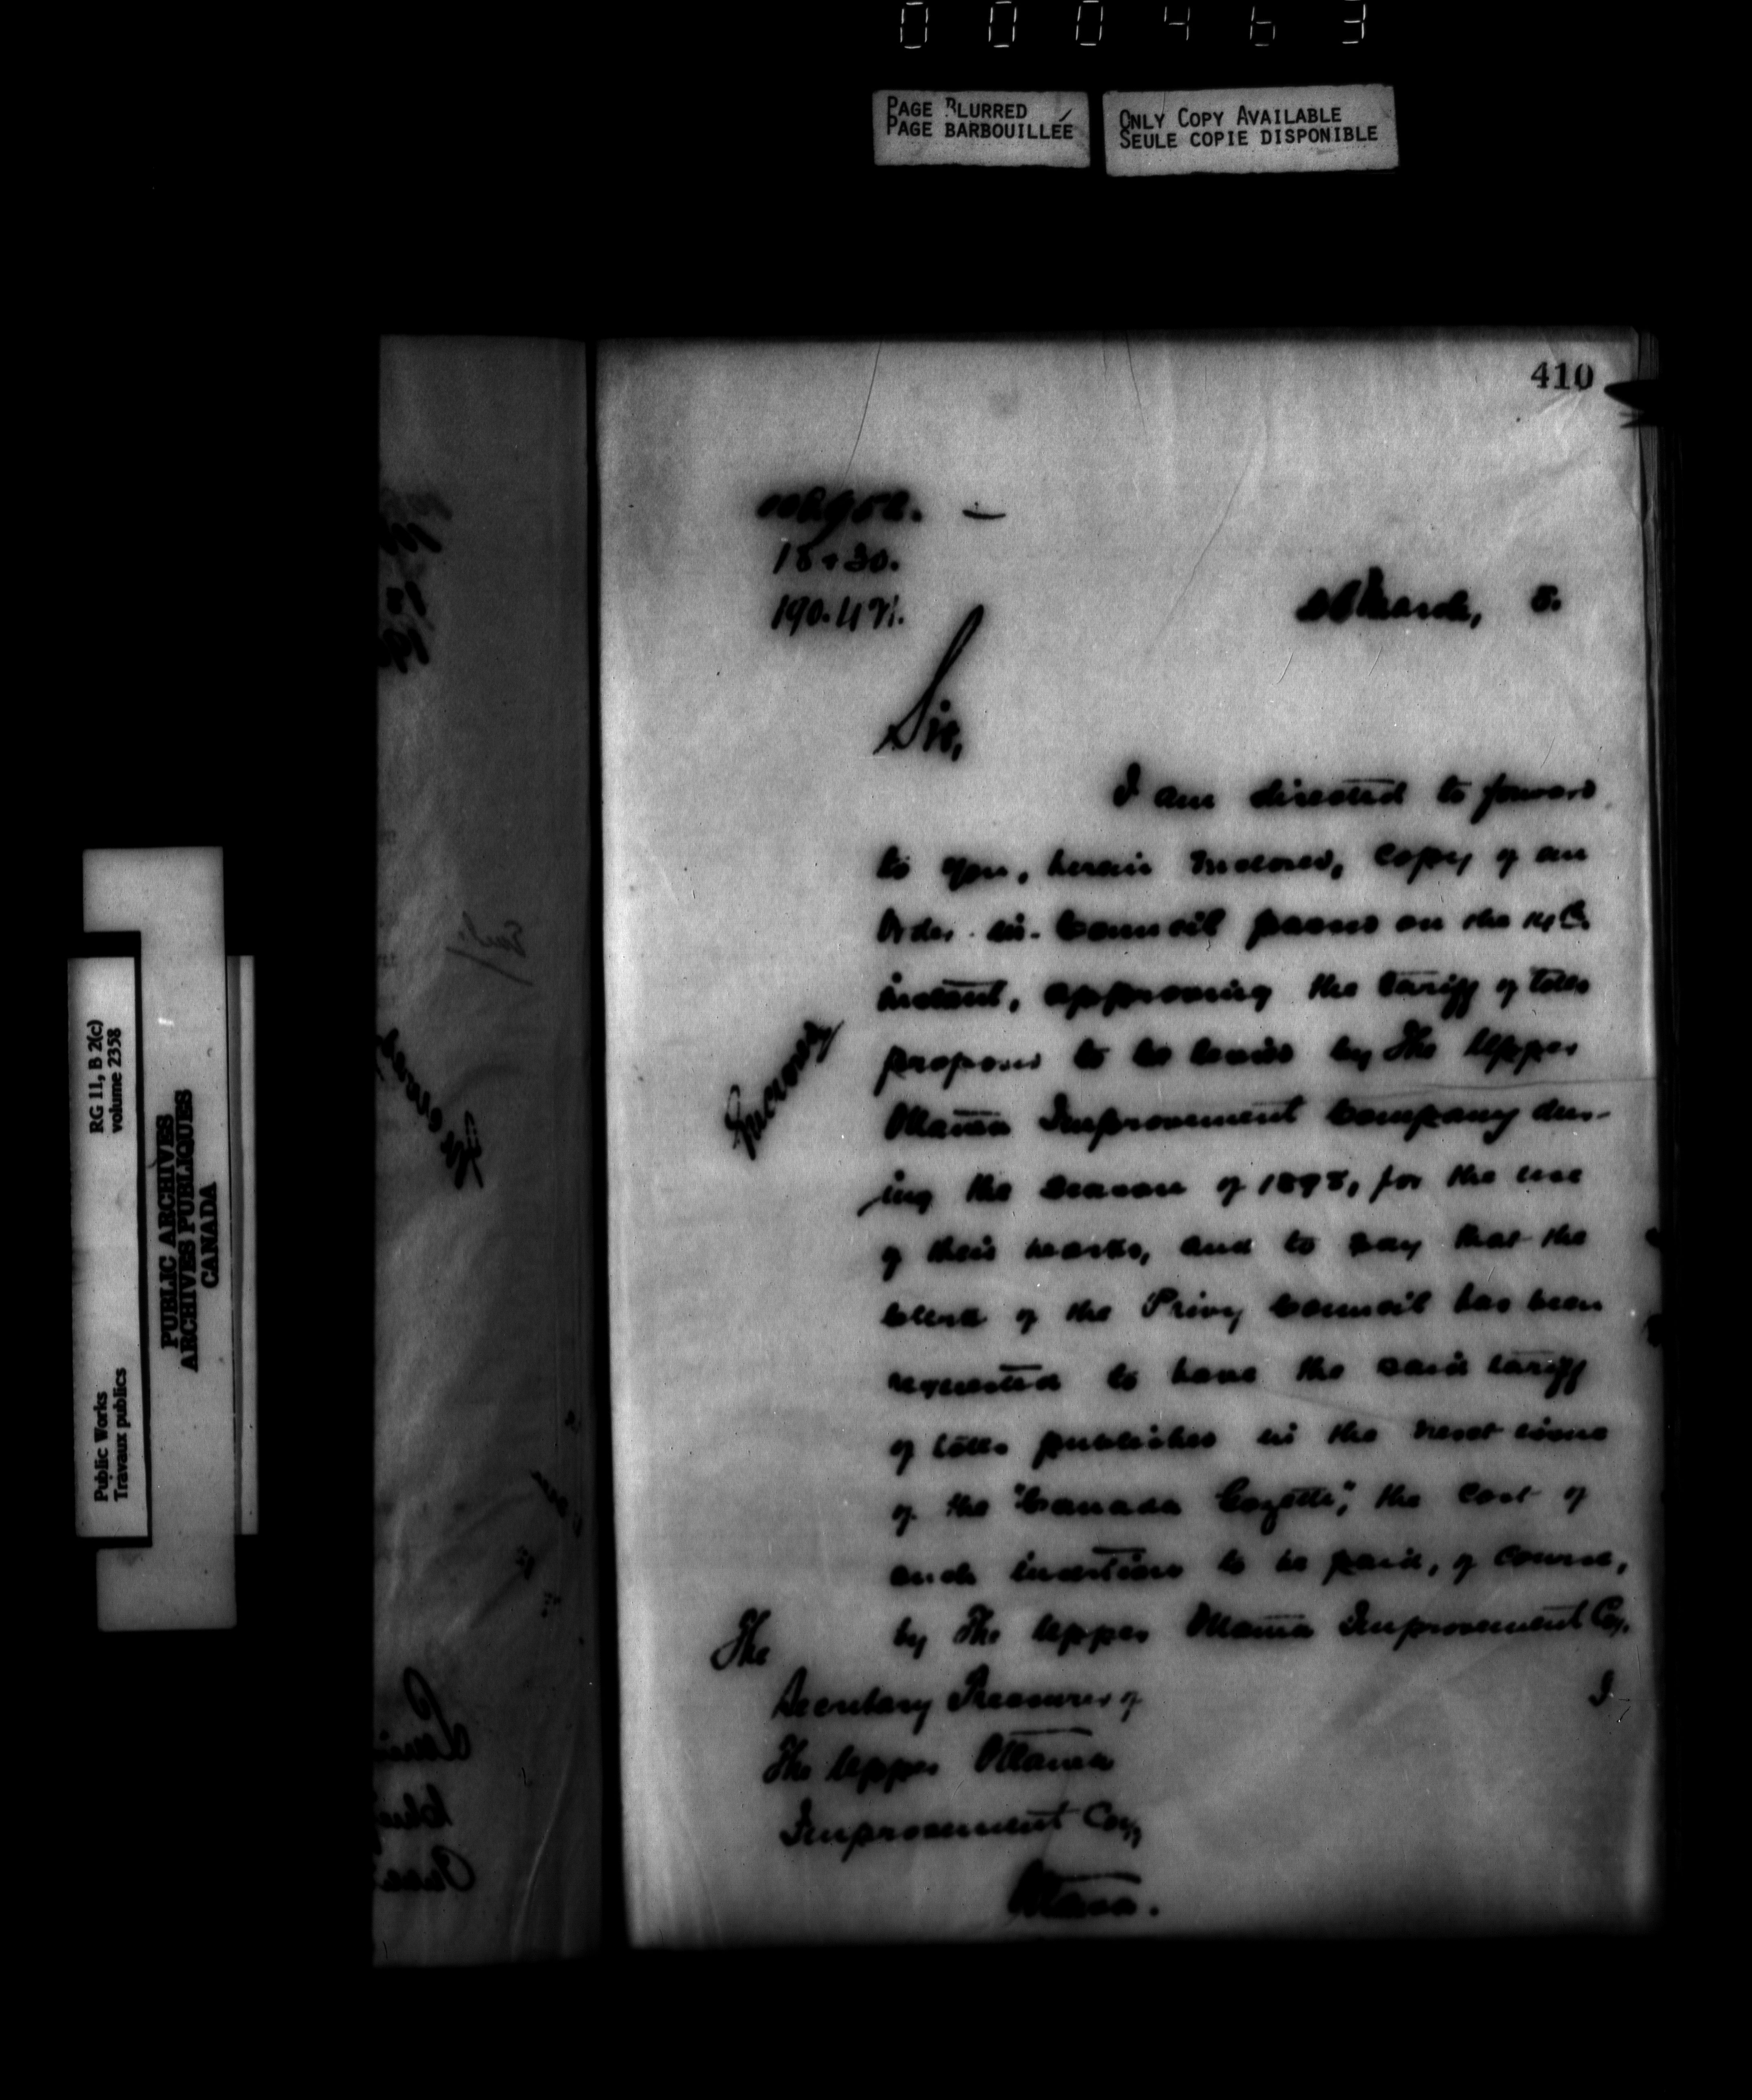 000463
PAGE BLURRED
PAGE BARBOUILLÉE
ONLY COPY AVAILABLE
SEULE COPIE DISPONIBLE
410
18+30.
190.471.
March, 5.
Sir,
I am directed to forward
to you, herein inclosed, copy of an
Order-in-Council passed on the
instant, approving the tariff of tolls
proposed to be levied by The Upper
Ottawa Improvement Company dur-
ing the season of 1895, for the use
of their works, and to say that the
Clerk of the Privy Council has been
requested to have the said tariff
of tolls published in the next issue
of the "Canada Gazette", the cost of
such insertion to be paid, of course,
by The Upper Ottawa Improvement Coy.
I
The
Secretary Treasurer of
The Upper Ottawa
Improvement Coy,
Ottawa.
RG 11, B 2(c)
volume 2358
Public Works
Travaux publics
PUBLIC ARCHIVES
ARCHIVES PUBLIQUES
CANADA